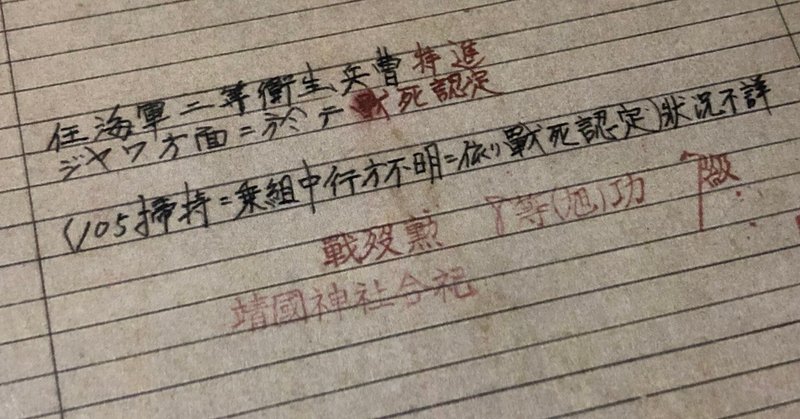 任海軍二等衛生兵曹 特進
ジヤワ方面ニ於テ戰死認定
(105掃特ニ乗組中行方不明ニ依リ戰死認定)狀況不詳
戰歿勲 等(旭)功 級
靖國神社合祀